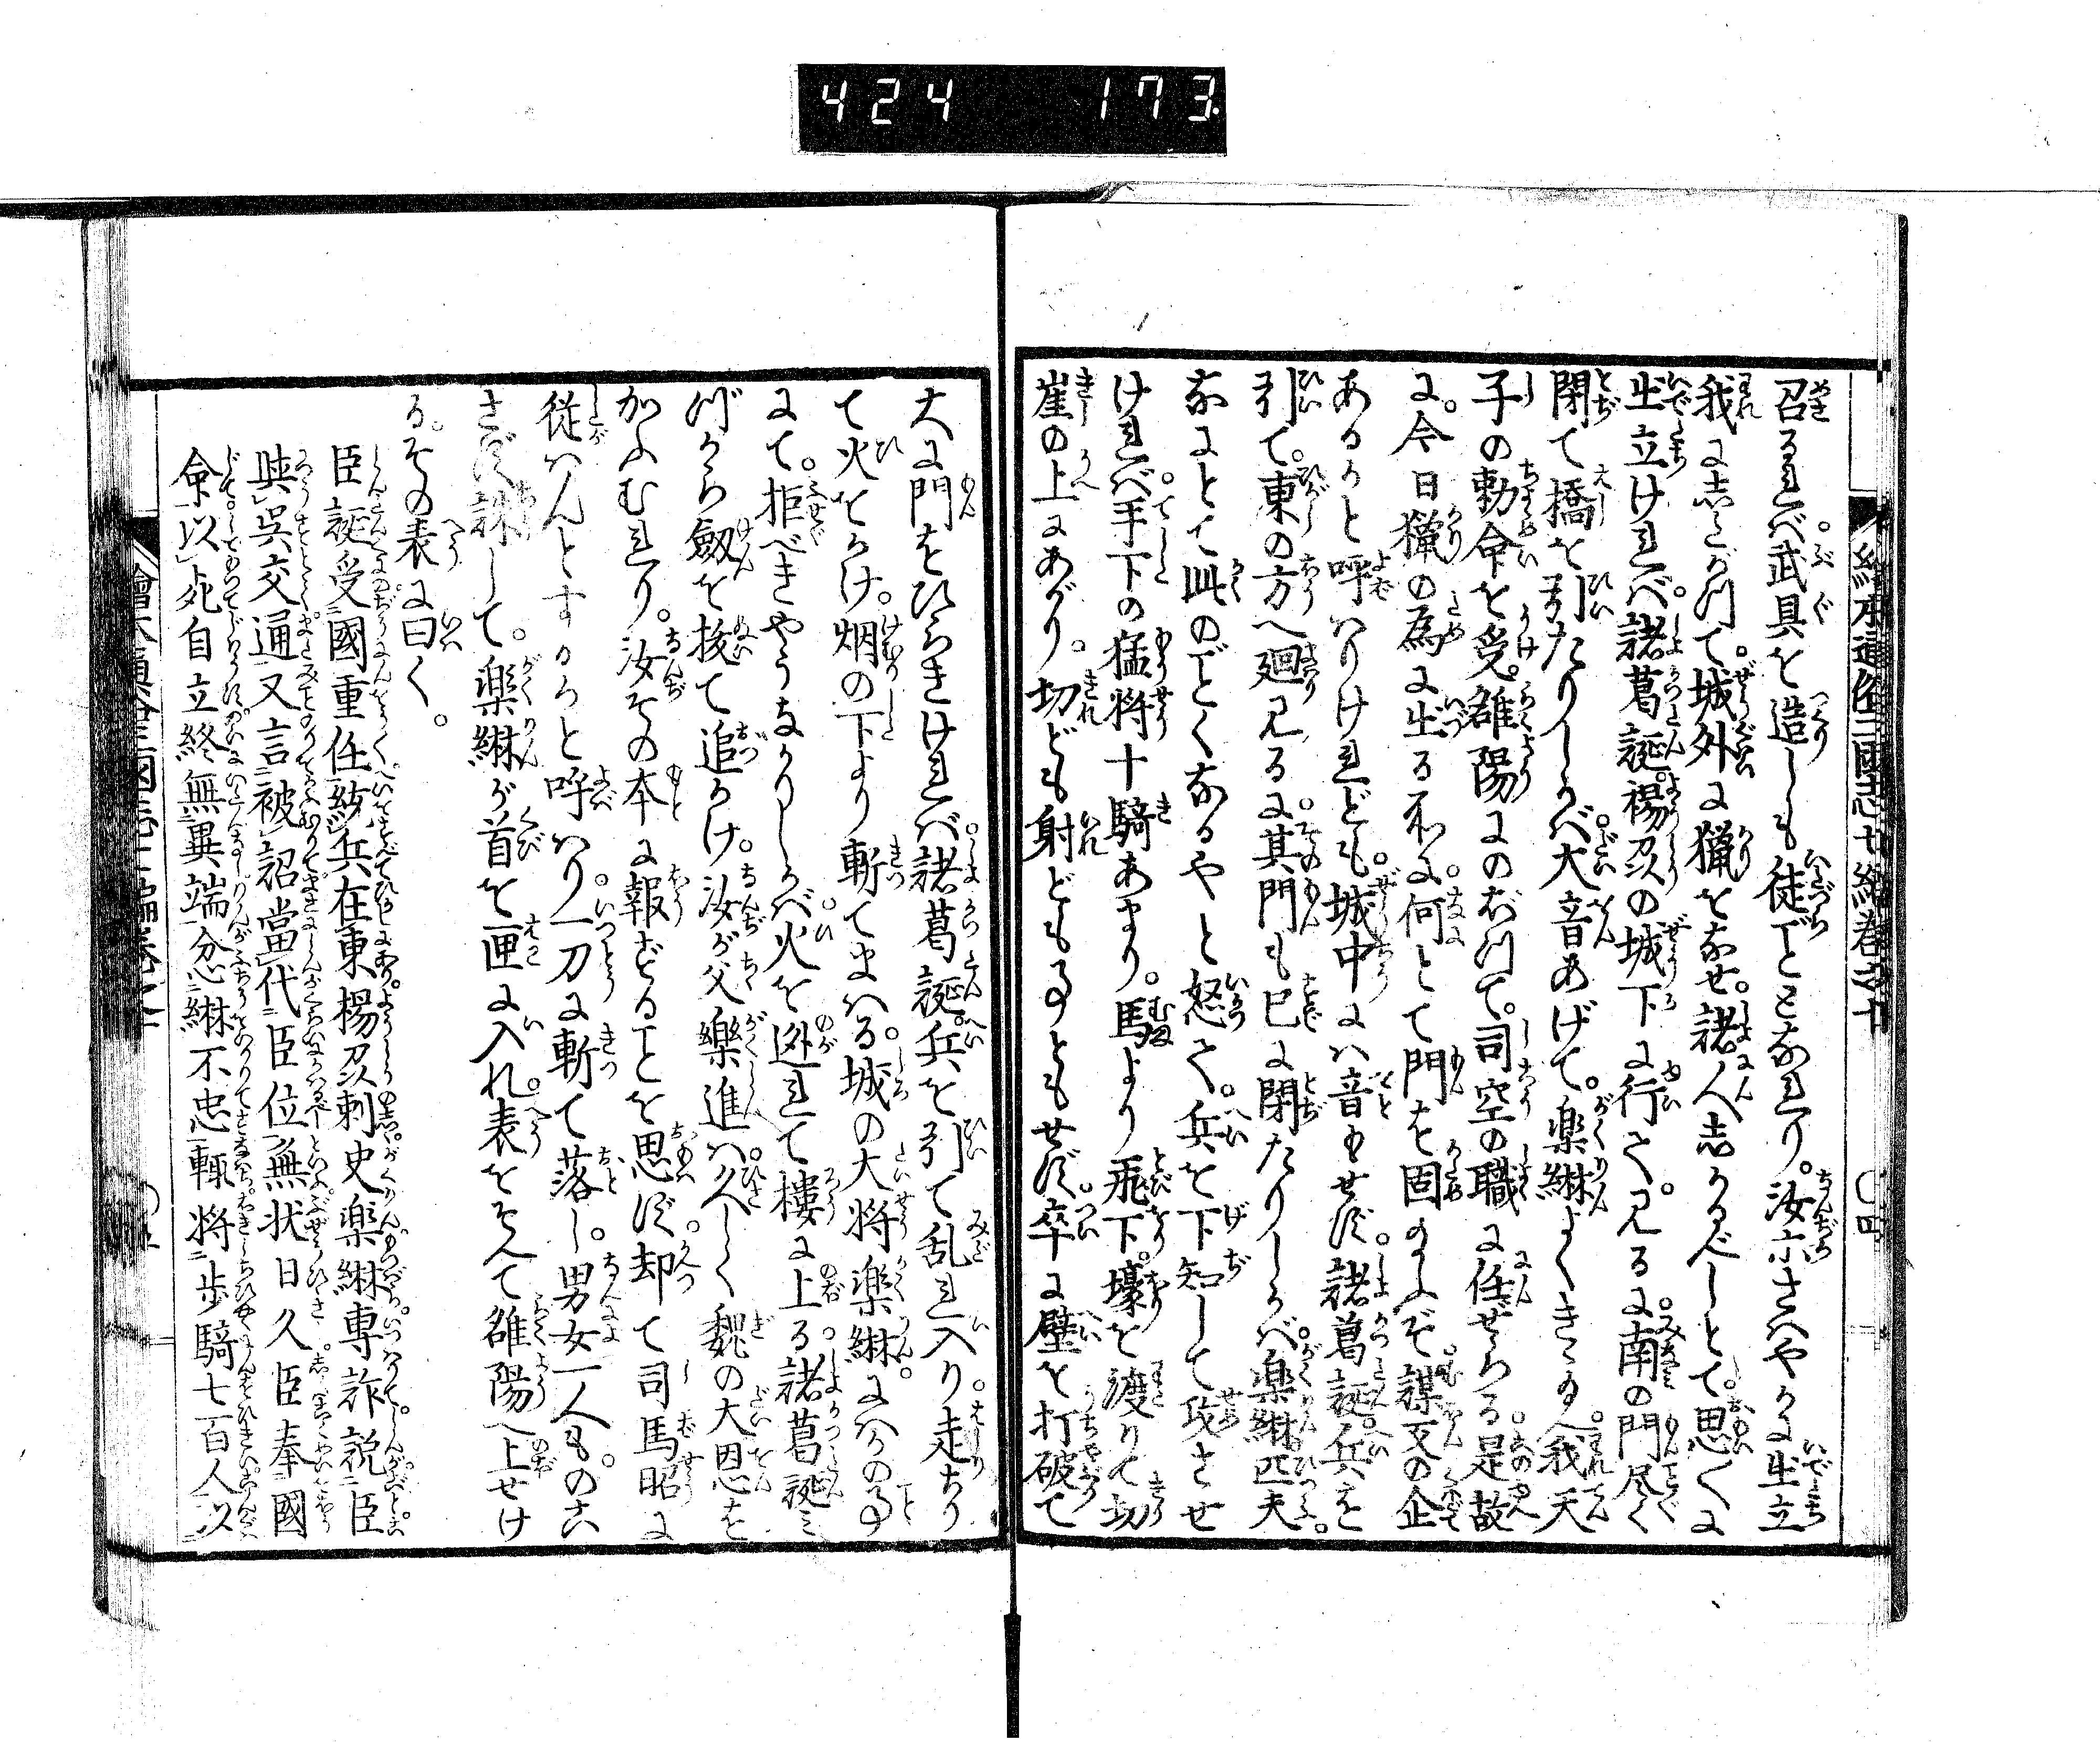 424 173
召るれば武具を造しも徒ごとなれり。汝等さはやかに出立
我にしたがつて。城外に猟をなせ。諸人しかるべしとて。思〱に
出立ければ。諸葛誕。楊州の城下に行て。見るに南の門尽く
閉て橋を引たりしかば。大音あげて。楽綝よくきけ。我天
子の勅命を受。雒陽にのぼつて。司空の職に任ぜらる。是故
に。今日猟の為に出るに。何とて門を固めたるぞ。謀叛の企
あるかと呼はりけれども。城中には音もせず。諸葛誕。兵を
引て。東の方へ廻見るに。其門も已に閉たりしかば。楽綝匹夫。
なにとて此のごとくなるやと怒て。兵を下知して攻させ
ければ。手下の猛将十騎あまり。馬より飛下。壕を渡りて切
崖の上にあがり。切ども射どもことともせず。卒に壁を打破て
大に門をひらきければ。諸葛誕。兵を引て乱れ入り。走ちり
て火をかけ。烟の下より斬てまはる。城の大将楽綝にはかの事
にて。拒べきやうなかりしかば。火を迯れて楼に上る。諸葛誕み
づから剱を抜て追かけ。汝が父樂進は。久しく魏の大恩を
かふむれり。汝その本に報ずることを思ず。却て司馬昭に
従はんとするかと呼はり。一刀に斬て落し。男女一人ものこ
さず誅して。楽綝が首を匣に入れ。表をそへて雒陽へ上せけ
る。その表に曰く。
臣誕受國重任統兵在東揚州刺史楽綝專詐説臣
與呉交通又言被詔當代臣位無状日久臣奉國
命以死自立終無異端忿綝不忠輙将歩騎七百人以